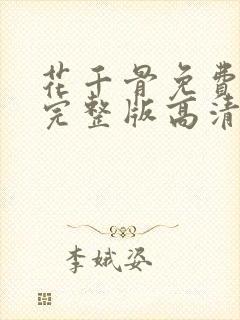 花千骨免费
完整版高清
李娥姿